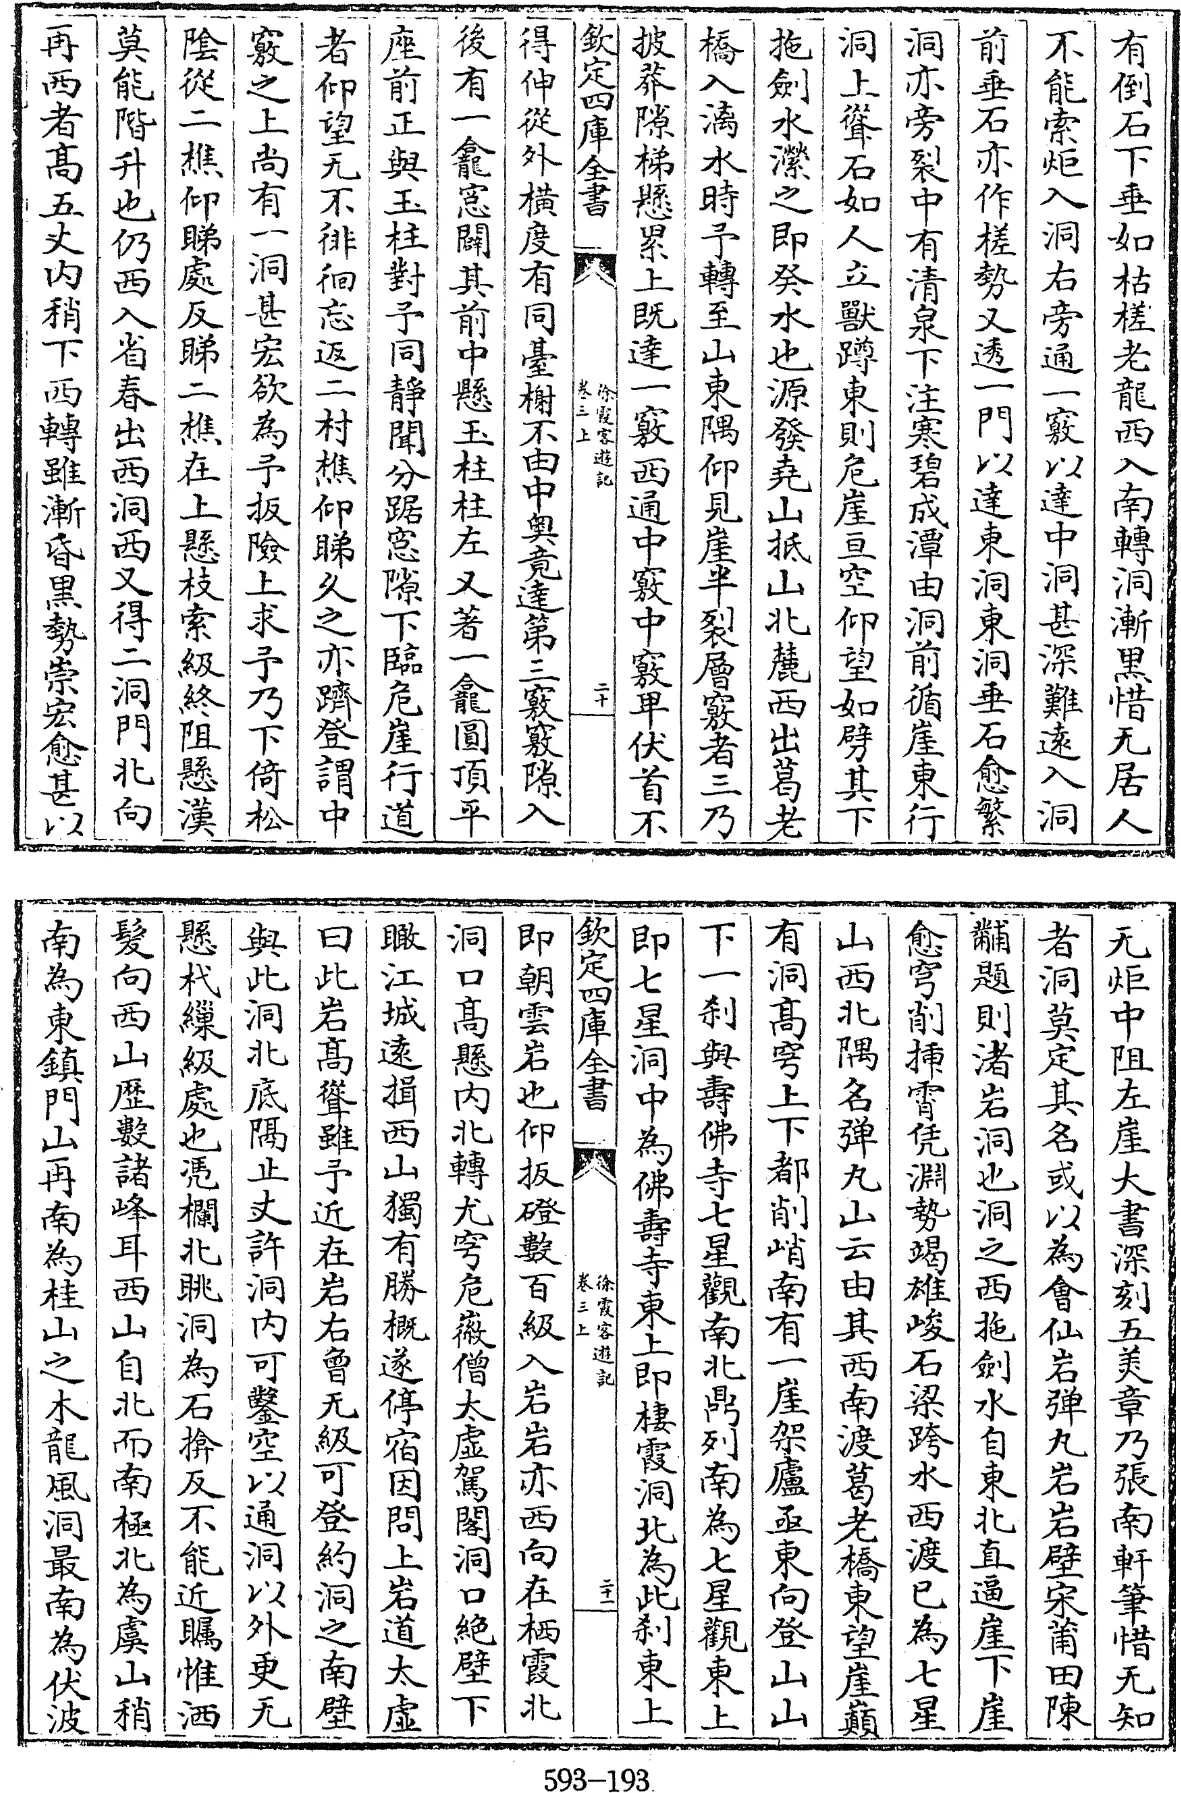 有倒石下垂如枯槎老龍西入南轉洞漸黒惜无居人
不能索炬入洞右旁通一竅以達中洞甚深難遠入洞
前垂石亦作槎勢又透一門以達東洞東洞垂石愈繁
洞亦旁裂中有清泉下注寒碧成潭由洞前循崖東行
洞上聳石如人立獸蹲東則危崖亘空仰望如劈其下
拖劍水瀠之即癸水也源發堯山抵山北麓西出葛老
橋入漓水時予轉至山東隅仰見崖半裂層竅者三乃
披莽隙梯懸累上既達一竅西通中竅中竅卑伏首不
欽定四庫全書
徐霞客遊記
卷三上
二十
得伸從外橫度有同臺榭不由中奥竟達第三竅竅隙入
後有一龕窓闢其前中懸玉柱柱左又著一龕圓頂平
座前正與玉柱對予同靜聞分踞窓隙下臨危崖行道
者仰望无不徘徊忘返二村樵仰睇久之亦躋登謂中
竅之上尚有一洞甚宏欲為予扳險上求予乃下倚松
隂從二樵仰睇處反睇二樵在上懸枝索級終阻懸漢
莫能階升也仍西入省春出西洞西又得二洞門北向
再西者髙五丈内稍下西轉雖漸昏黒勢崇宏愈甚以
无炬中阻左崖大書深刻五美章乃張南軒筆惜无知
者洞莫定其名或以為會仙岩弹丸岩岩壁宋莆田陳
黼題則渚岩洞也洞之西拖劍水自東北直逼崖下崖
愈穹削挿霄凭淵勢竭雄峻石梁跨水西渡已為七星
山西北隅名弹丸山云由其西南渡葛老橋東望崖巔
有洞髙穹上下都削峭南有一崖架廬亟東向登山山
下一刹與壽佛寺七星觀南北鼎列南為七星觀東上
即七星洞中為佛壽寺東上即棲霞洞北為此刹東上
欽定四庫全書
徐霞客遊記
卷三上
二十一
即朝雲岩也仰扳磴數百級入岩岩亦西向在栖霞北
洞口髙懸内北轉尤穹危嶶僧太虚駕閣洞口絶壁下
瞰江城遠揖西山獨有勝概遂停宿因問上岩道太虚
曰此岩髙聳雖予近在岩右曾无級可登約洞之南壁
與此洞北底隔止丈許洞内可鑿空以通洞以外更无
懸杙纆級處也凭欄北眺洞為石揜反不能近矚惟洒
髮向西山歴數諸峰耳西山自北而南極北為虞山稍
南為東鎮門山再南為桂山之木龍風洞最南為伏波
593-193